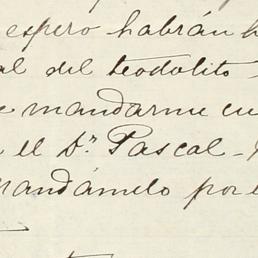 espero habrán h
al del teodolito
e mandarme cu
el Dr. Pascal -
mandámelo por e